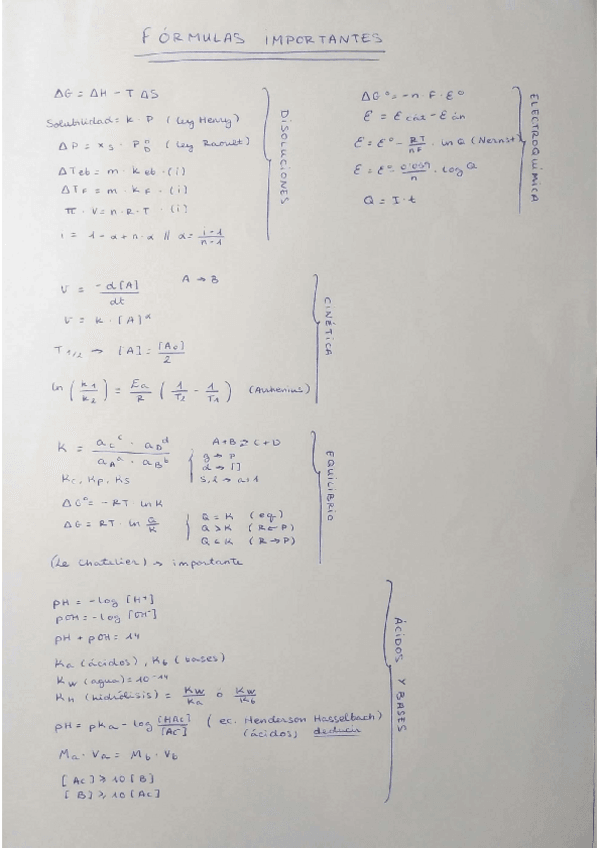 FÓRMULAS IMPORTANTES
ΔG = ΔH - T ΔS
Solubilidad = K · P (ley Henry)
ΔP = xs · P₀⁰ (ley Raoult)
ΔTeb = m · Keb · (i)
ΔTF = m · KF · (i)
π · V = n · R · T · (i)
i = 1 - α + n · α // α = (i-1)/(n-1)
DISOLUCIONES
ΔG° = -n · F · E°
E = E cát - E án
E = E° - RT/nF · ln Q (Nernst)
E = E° - 0'059/n · log Q
Q = I · t
ELECTROQUÍMICA
v = -d[A]/dt A → B
v = k · [A]^α
T 1/2 → [A] = [A₀]/2
ln (k1/k2) = Ea/R (1/T2 - 1/T1) (Arrhenius)
CINÉTICA
K = aC^c · aD^d / aA^a · aB^b
A+B ⇌ C+D
g → P
d → []
s, l → a=1
Kc, Kp, Ks
ΔG° = -RT · ln K
ΔG = RT · ln Q/K
Q = K (eq)
Q > K (R ← P)
Q < K (R → P)
(Le Chatelier) → importante
EQUILIBRIO
pH = -log [H⁺]
pOH = -log [OH⁻]
pH + pOH = 14
Ka (ácidos), Kb (bases)
Kw (agua) = 10^-14
KH (hidrólisis) = Kw/Ka ó Kw/Kb
pH = pKa - log [HAc]/[Ac] (ec. Henderson Hasselbach)
(ácidos) deducir
Ma · Va = Mb · Vb
[Ac] ≥ 10 [B]
[B] ≥ 10 [Ac]
ÁCIDOS Y BASES